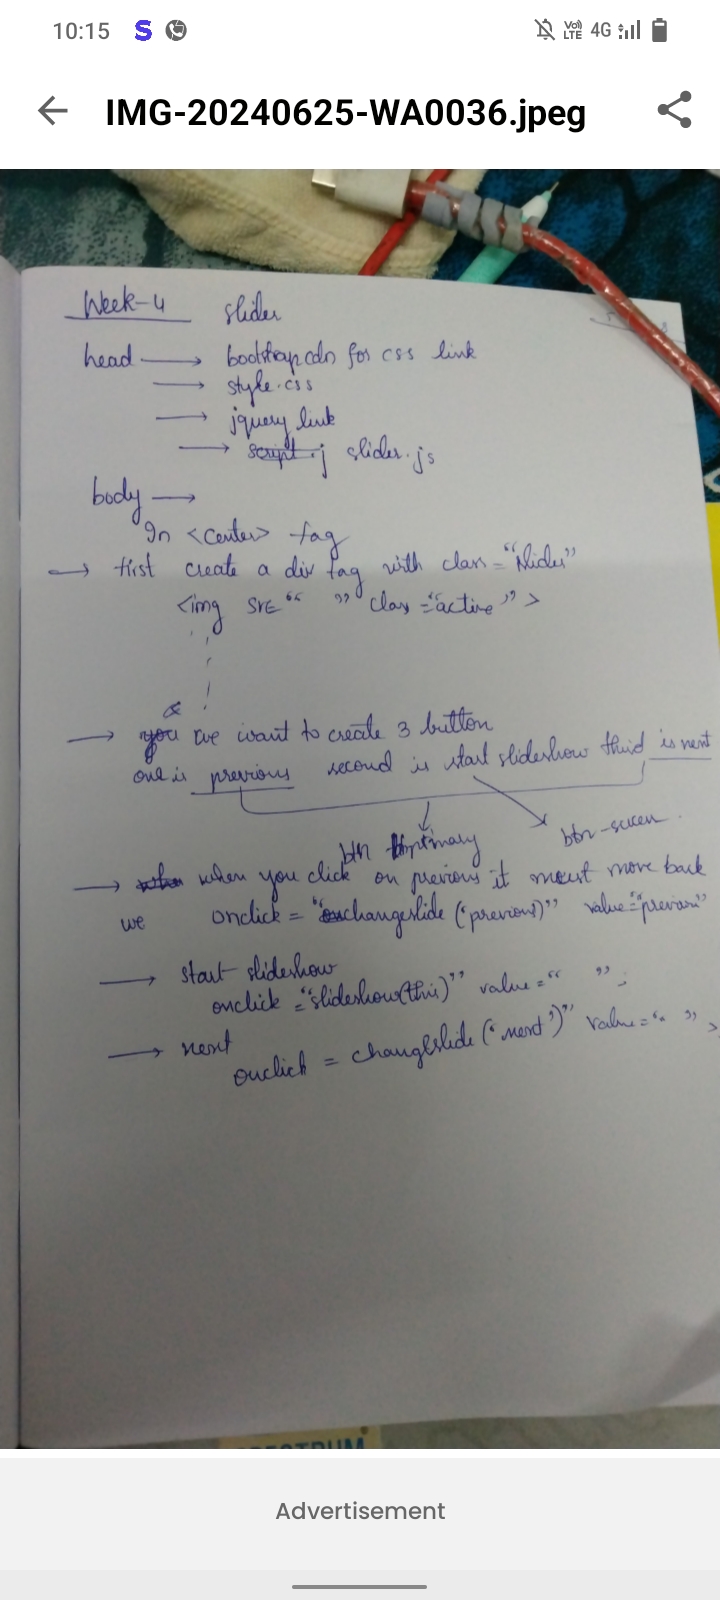 10:15 S Vo)) LTE 4G
IMG-20240625-WA0036.jpeg
Week-4 slider
head → bootstrap cdn for css link
→ style.css
→ jquery link
→ script.j slider.js
body →
In <center> tag
→ first create a div tag with class = "slider"
<img src "   " class = "active" >
&
→ you we want to create 3 button
one is previous second is start slideshow thuid is next
btn primary btn-
→ when when you click on previous it moust move back
we onclick = "changeslide ('previous')" value = "previous"
→ start slideshow
onclick = "slideshow(this)" value = "   ";
→ next
onclick = changeslide ('next')" value = "   " >
SPECTRUM
Advertisement